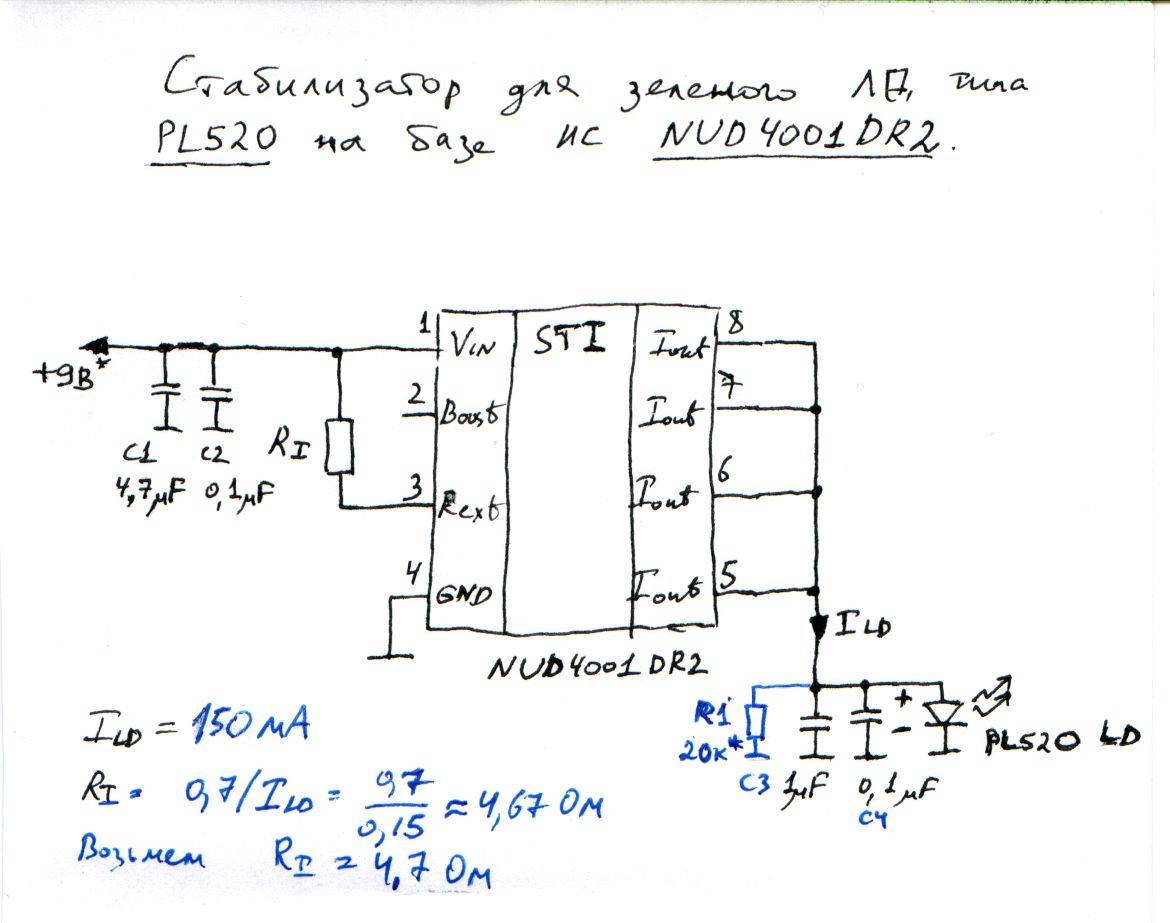 Стабилизатор для зеленого ЛД, типа
PL520 на базе ИС NUD4001DR2.
+9В*
C1
4,7µF
C2
0,1µF
RI
1
2
3
4
VIN
Boost
Rext
GND
STI
Iout
Iout
Iout
Iout
8
7
6
5
NUD4001DR2
ILD
R1
20к*
C3 1µF
0,1µF
C4
+
-
PL520 LD
ILD = 150 мА
RI = 0,7/ILD = 0,7/0,15 ≈ 4,67 Ом
Возьмем RI = 4,7 Ом